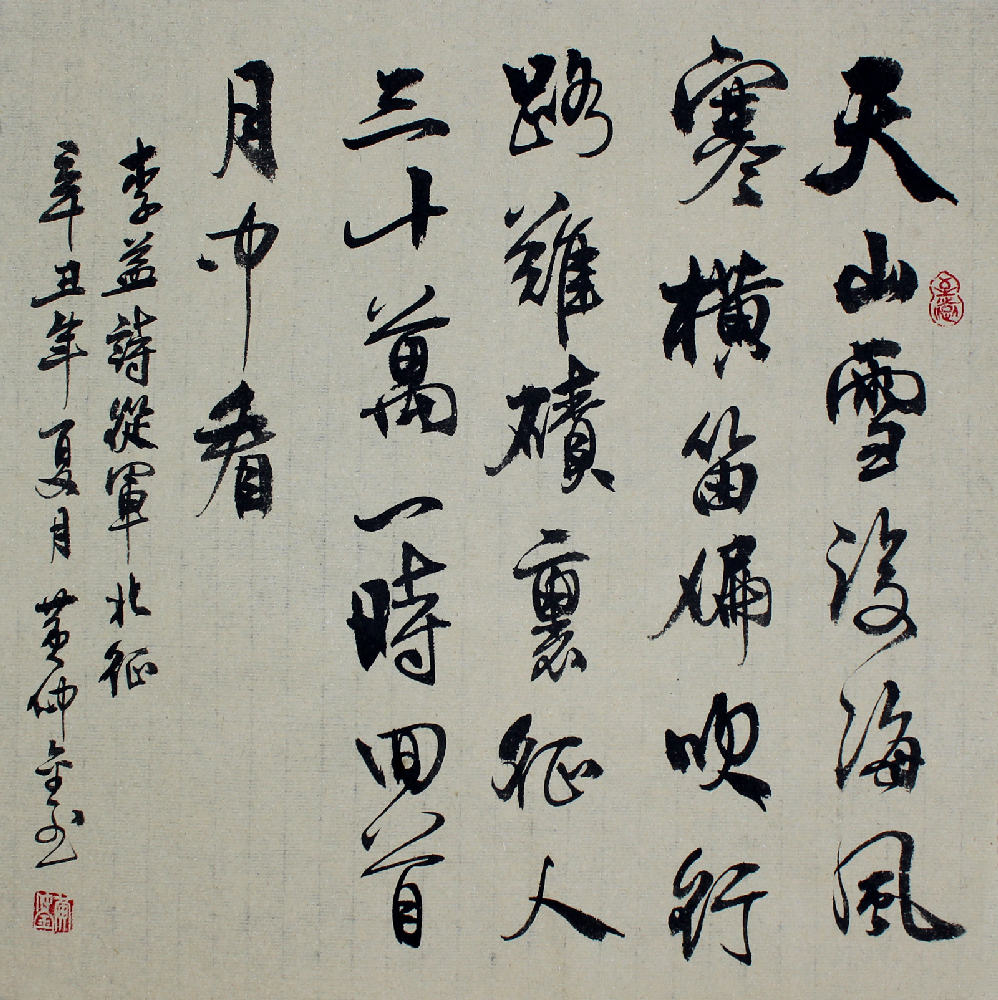 天山雪後海風
寒橫笛偏吹行
路難磧裏征人
三十萬一時回首
月中看
李益詩從軍北征
辛丑年夏月黄仲金书